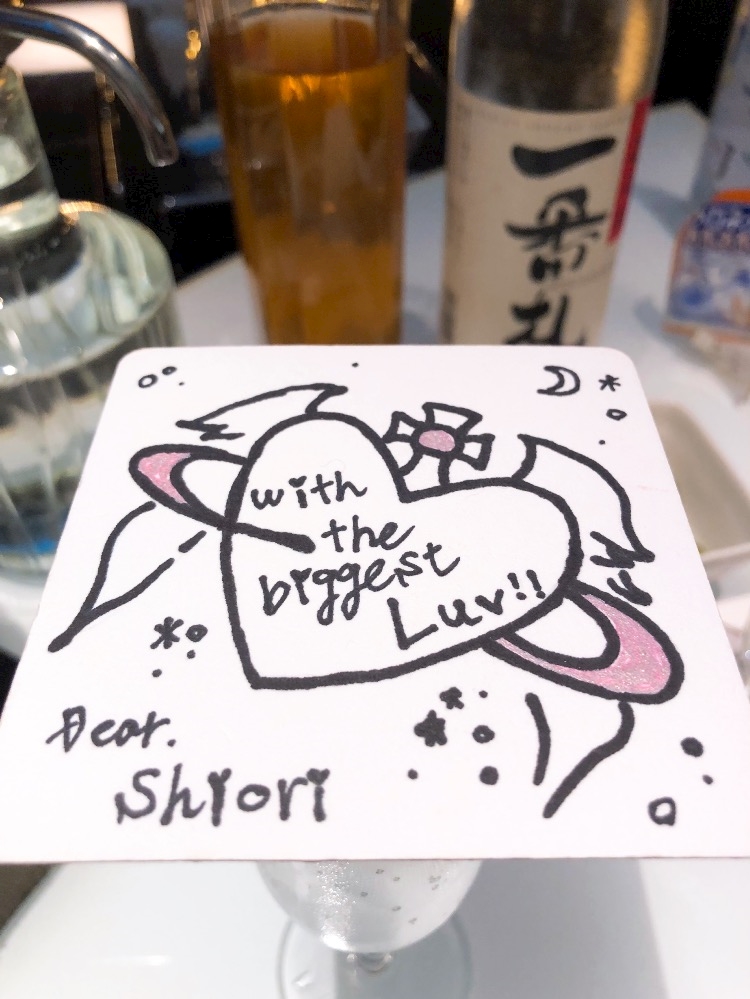 一番札
with
the
biggest
Luv!!
Dear.
Shiori